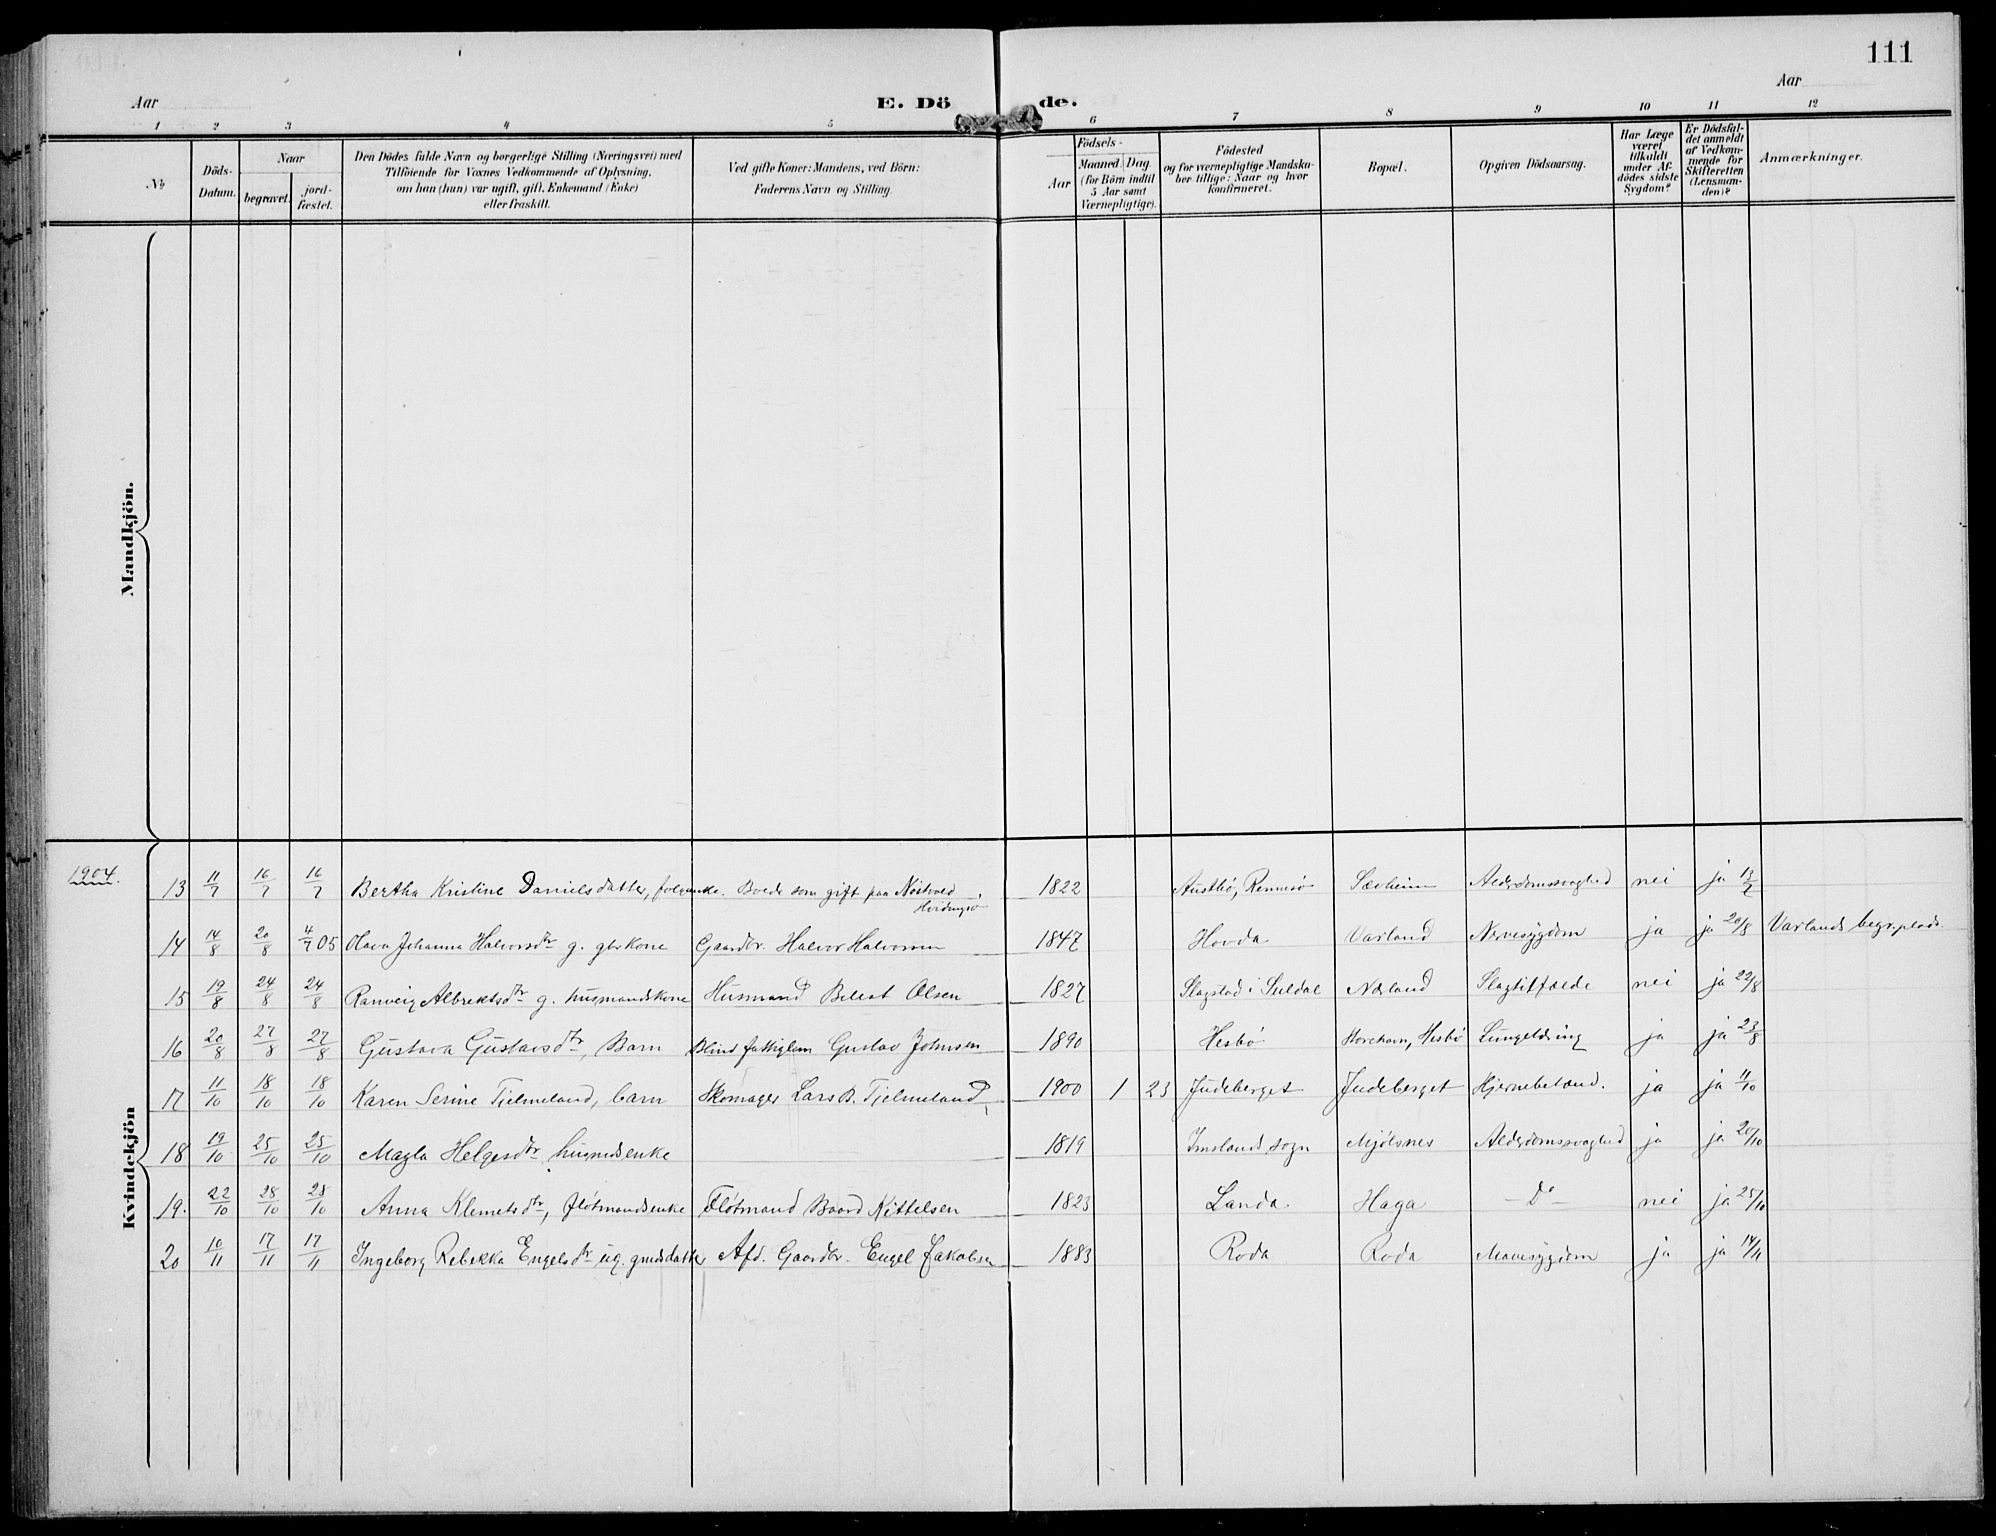 111
Aar Aar
E. Dö de.
1 2 3 4 5 6 7 8 9 10 11 12
№
Döds-Datum.
Naar
begravet.
jord-fæstet.
Den Dödes fulde Navn og borgerlige Stilling (Næringsvei) med
Tilföiende for Voxnes Vedkommende af Oplysning,
om han (hun) var ugift, gift, Enkemand (Enke)
eller fraskilt.
Ved gifte Koner: Mandens, ved Börn:
Faderens Navn og Stilling.
Födsels-
Aar
Maaned. Dag.
(for Börn indtil
5 Aar samt
Værnepligtige).
Födested
og for værnepligtige Mandska-
ber tillige: Naar og hvor
konfirmeret.
Bopæl.
Opgiven Dödsaarsag.
Har Læge
været
tilkaldt
under Af-
dödes sidste
Sygdom?
Er Dödsfal-
det anmeldt
af Vedkom-
mende for
Skifteretten
(Lensman-
den)?
Anmærkninger.
Mandkjön.
Kvindekjön
1904.
13 11/7 16/7 16/7 Bertha Kristine Danielsdatter, folgenke. Boede som gift paa Nöstvold, Hvidingsö 1822 Austbö, Rennesö Sævheim Alderdomssvaghed nei ja 13/7
14 14/8 20/8 4/7 05 Olava Johanna Halvorsdtr g. gbrkone Gaardbr. Halvor Halvorsen 1847 Hovda Varland Nervesygdom ja ja 20/8 Varlands begr.plads.
15 19/8 24/8 24/8 Ranveig Albrektsdtr g. husmandskone Husmand Belest Olsen 1827 Slagstad i Suldal Nærland Slagtilfælde nei ja 22/8
16 20/8 27/8 27/8 Gustava Gustavsdtr, Barn Blind fattiglem Gustav Johnsen 1890 Hesbö Storehavn, Hesbö Lungetæring ja ja 23/8
17 11/10 18/10 18/10 Karen Serine Tjelmeland, barn Skomager Lars B. Tjelmeland, 1900 1 23 Judeberget Judeberget Hjernebetænd. ja ja 11/10
18 19/10 25/10 25/10 Magla Helgesdtr, husmdsenke 1819 Imslands sogn Mjölsnes Alderdomssvaghed ja ja 20/10
19. 22/10 28/10 28/10 Anna Klemetsdtr, fløtmandsenke Fløtmand Baard Kittelsen 1823 Landa Haga – Do – nei ja 25/10
20 10/11 17/11 17/11 Ingeborg Rebekka Engelsdtr ug. grmdsdatter Afd. Gaardbr. Engel Jakobsen 1883 Roda Roda Mavesygdom ja ja 14/11